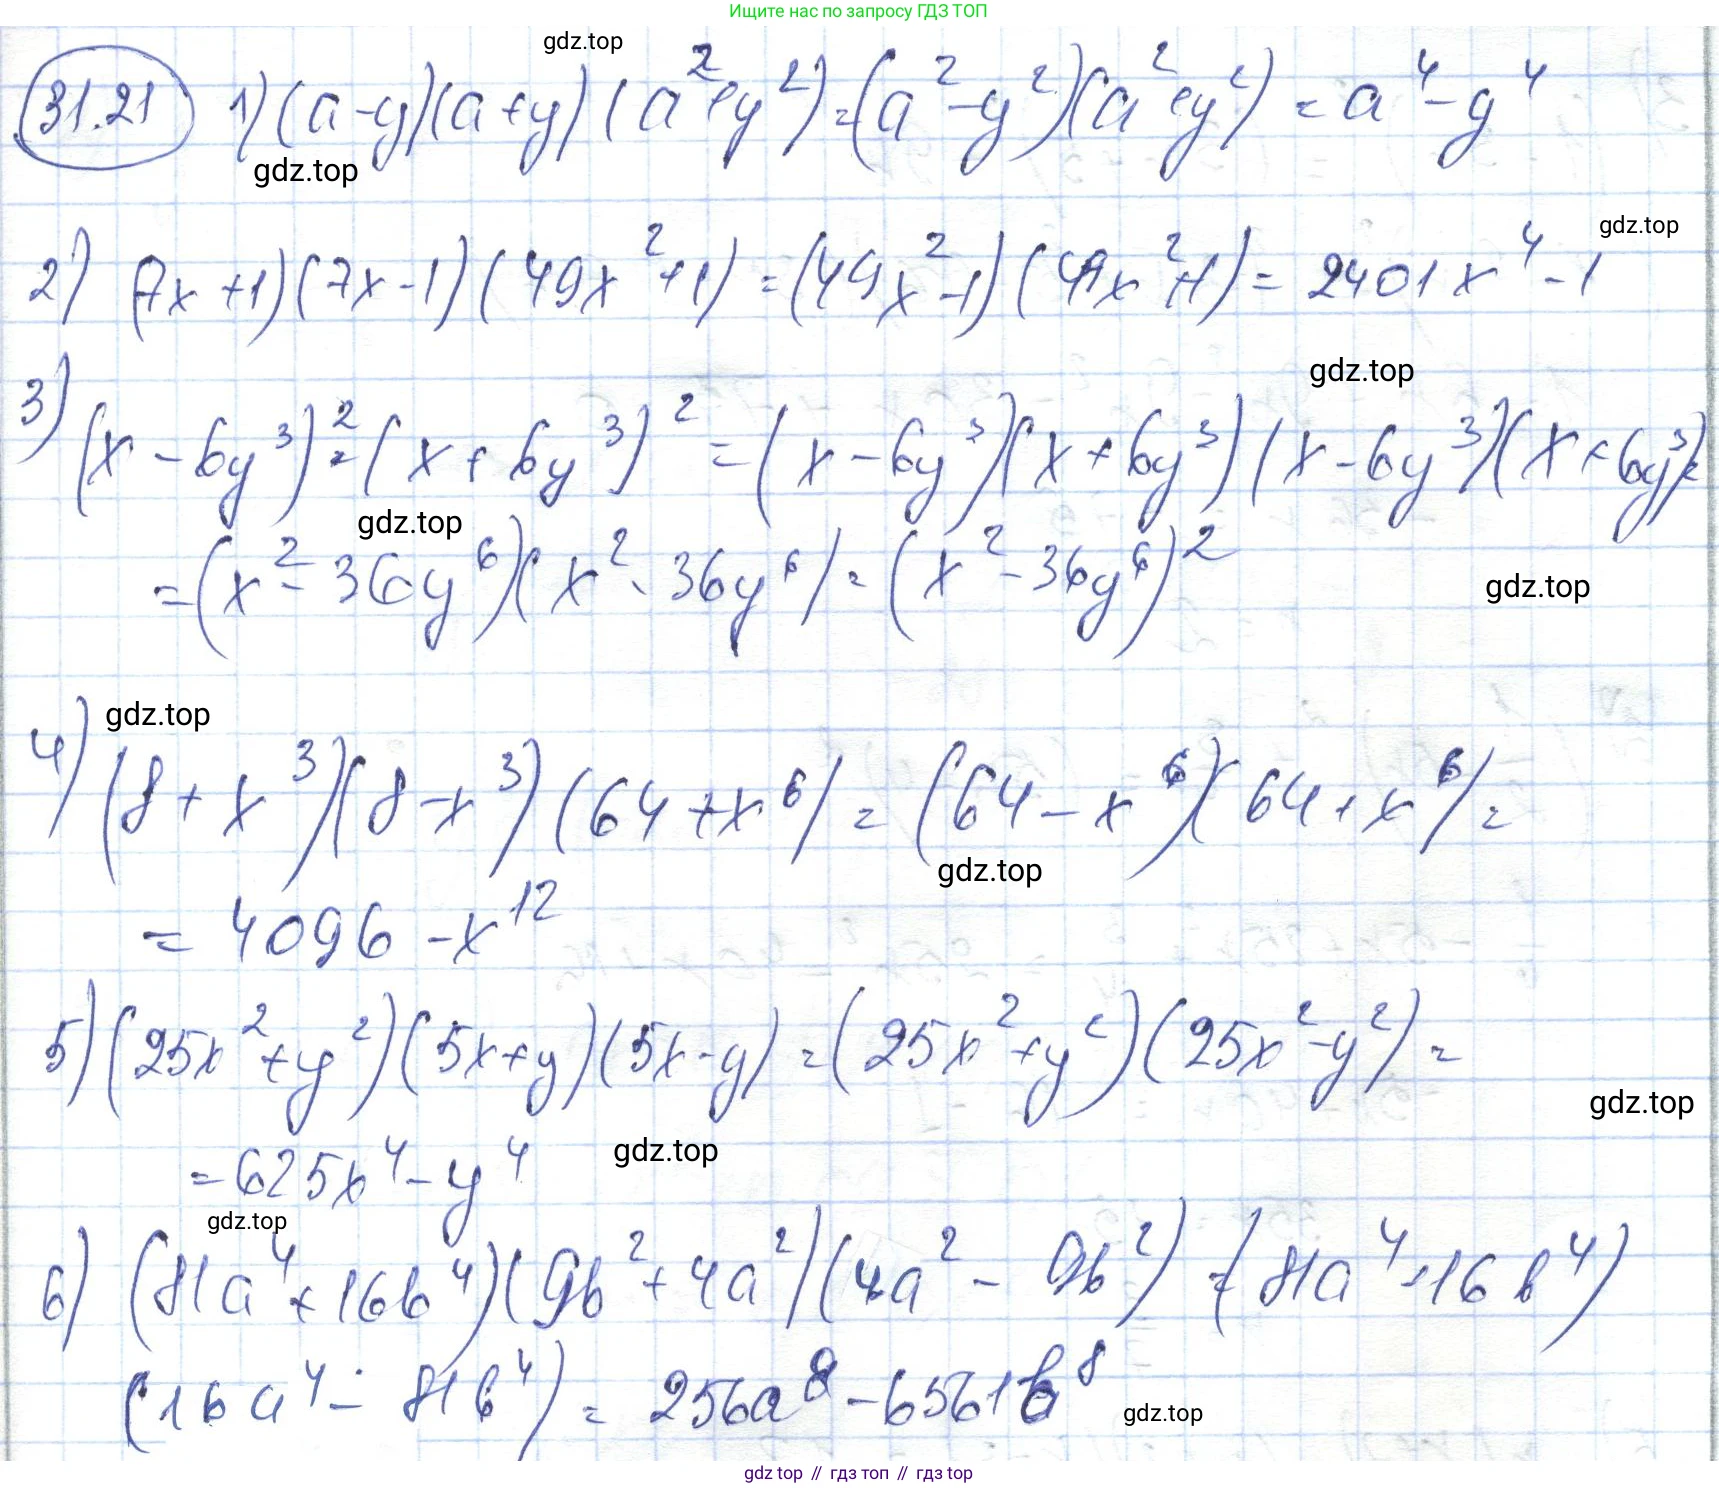 Ищите нас по запросу ГДЗ ТОП
gdz.top
31.21 1) (a-y)(a+y)(a²+y²)=(a²-y²)(a²+y²)=a⁴-y⁴
gdz.top
gdz.top
2) (7x+1)(7x-1)(49x²+1)=(49x²-1)(49x²+1)=2401x⁴-1
gdz.top
3) (x-6y³)²·(x+6y³)²=(x-6y³)(x+6y³)(x-6y³)(x+6y³)=
gdz.top
=(x²-36y⁶)(x²-36y⁶)=(x²-36y⁶)²
gdz.top
gdz.top
4) (8+x³)(8-x³)(64+x⁶)=(64-x⁶)(64+x⁶)=
gdz.top
=4096-x¹²
5) (25x²+y²)(5x+y)(5x-y)=(25x²+y²)(25x²-y²)=
gdz.top
=625x⁴-y⁴
gdz.top
gdz.top
6) (81a⁴+16b⁴)(9b²+4a²)(4a²-9b²)=(81a⁴+16b⁴)
(16a⁴-81b⁴)=256a⁸-6561b⁸
gdz.top
gdz top // гдз топ // гдз top